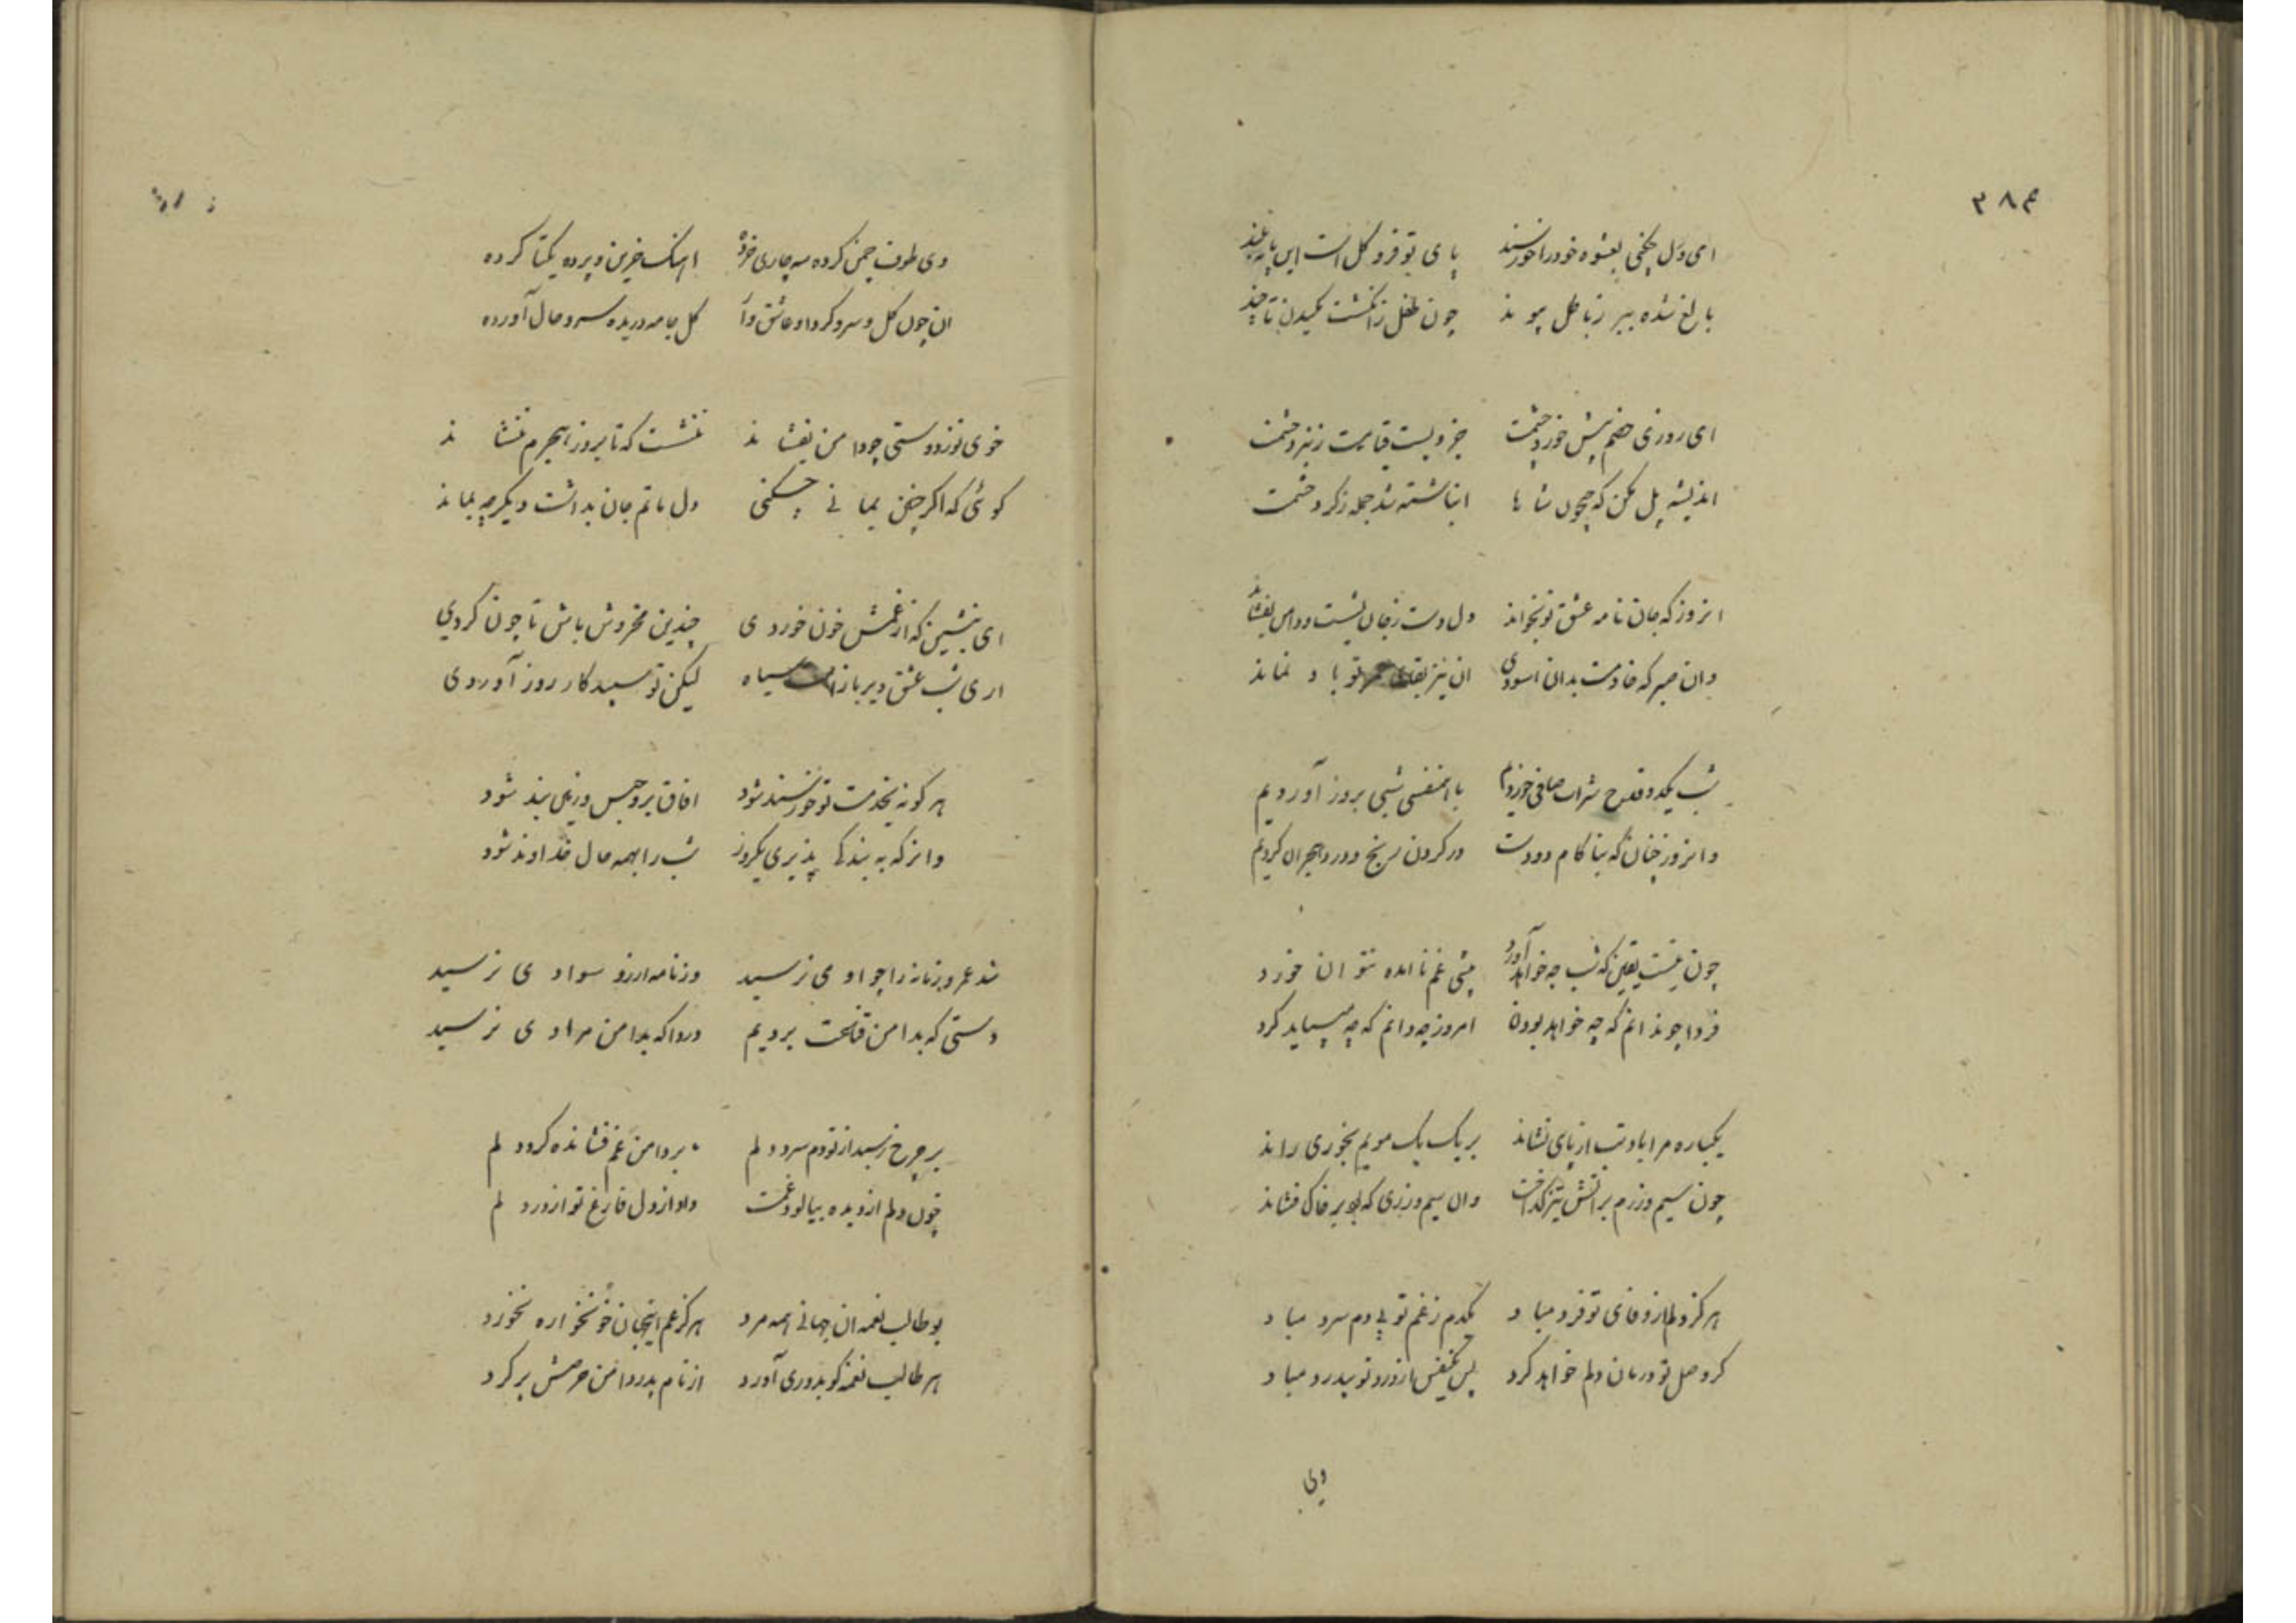 ۳۸۴
ای دل چکنی بعشوه خود را خورسند پای تو فرو کل است این پایه بلند
بالغ شده ببر ز باطل پیوند چون طفل ز انکشت مکیدن تا چند
ای روزی خصم پیش خورد حشمت جزویست قیامت ز نبرد حشمت
اندیشه پل مکن که جیحون شاها انباشته شد جمله ز کرد حشمت
انروز که جان نامه عشق تو بخواند دل دست ز جان بشست و دامن بفشاند
وان صبر که خادمت بدان اسودی ان نیز بقای عمر تو باد نماند
شب یکدو قدح شراب صافی خوردیم با همنفسی شبی بروز آوردیم
و امروز چنان که بنا کام دودست در کردن رنج و درد هجران کردیم
چون نیست یقین که شب چه خواهد آورد پیشی غم نامده نتوان خورد
فردا چو ندانم که چه خواهد بودن امروز چه دانم که چه میباید کرد
یکباره مرا بادتب از پای نشاند بر یک یک مویم بخوری راند
چون سیم و زرم بر اتش تیز کداخت وان سیم و زری که بود بر خاک فشاند
هرکز دلم از وفای تو فرد مباد یکدم ز غم تو بی دم سرد مباد
کر وصل تو درمان دلم خواهد کرد پس یکنفس از درد تو بیدرد مباد
وی طوف چمن کرده سه چاری خورده اهنک خزین و پرده یکتا کرده
ان چون کل و سرو کرد او عاشق وار کل جامه دریده سرو حال آورده
خوی تو ز دوستی چو دامن بفشاند ننشست که تا بروز هجرم ننشاند
کوئی که اکر چنین بمانی چکنی دل ماتم جان بداشت دیکر چه بماند
ای بنشین که از غمش خون خوردی چندین مخروش باش تا چون کردی
اری شب عشق دیر باز است سیاه لیکن تو سپید کار روز آوردی
هر کو نه بخدمت تو خورسند شود افاق برو حبس و زمین بند شود
وانرا که به بندکی پذیری یکروز شب را بهمه حال خداوند شود
شد عمر و زمانه را جوادی نرسید وز نامه ارزو سوادی نرسید
دستی که بدامن قناعت بردیم دردا که بدامن مرادی نرسید
بر چرخ رسید از تو دم سرد دلم بر دامن غم فشانده کرد دلم
چون دلم از دیده بپالود غمت داد از دل فارغ تو از درد دلم
بوطالب نعمه ان جهانی همه مرد هرکز غم اینجهان خونخواره نخورد
هر طالب نعمه کو بدوری آورد از نام پدر دامن حرصش پر کرد